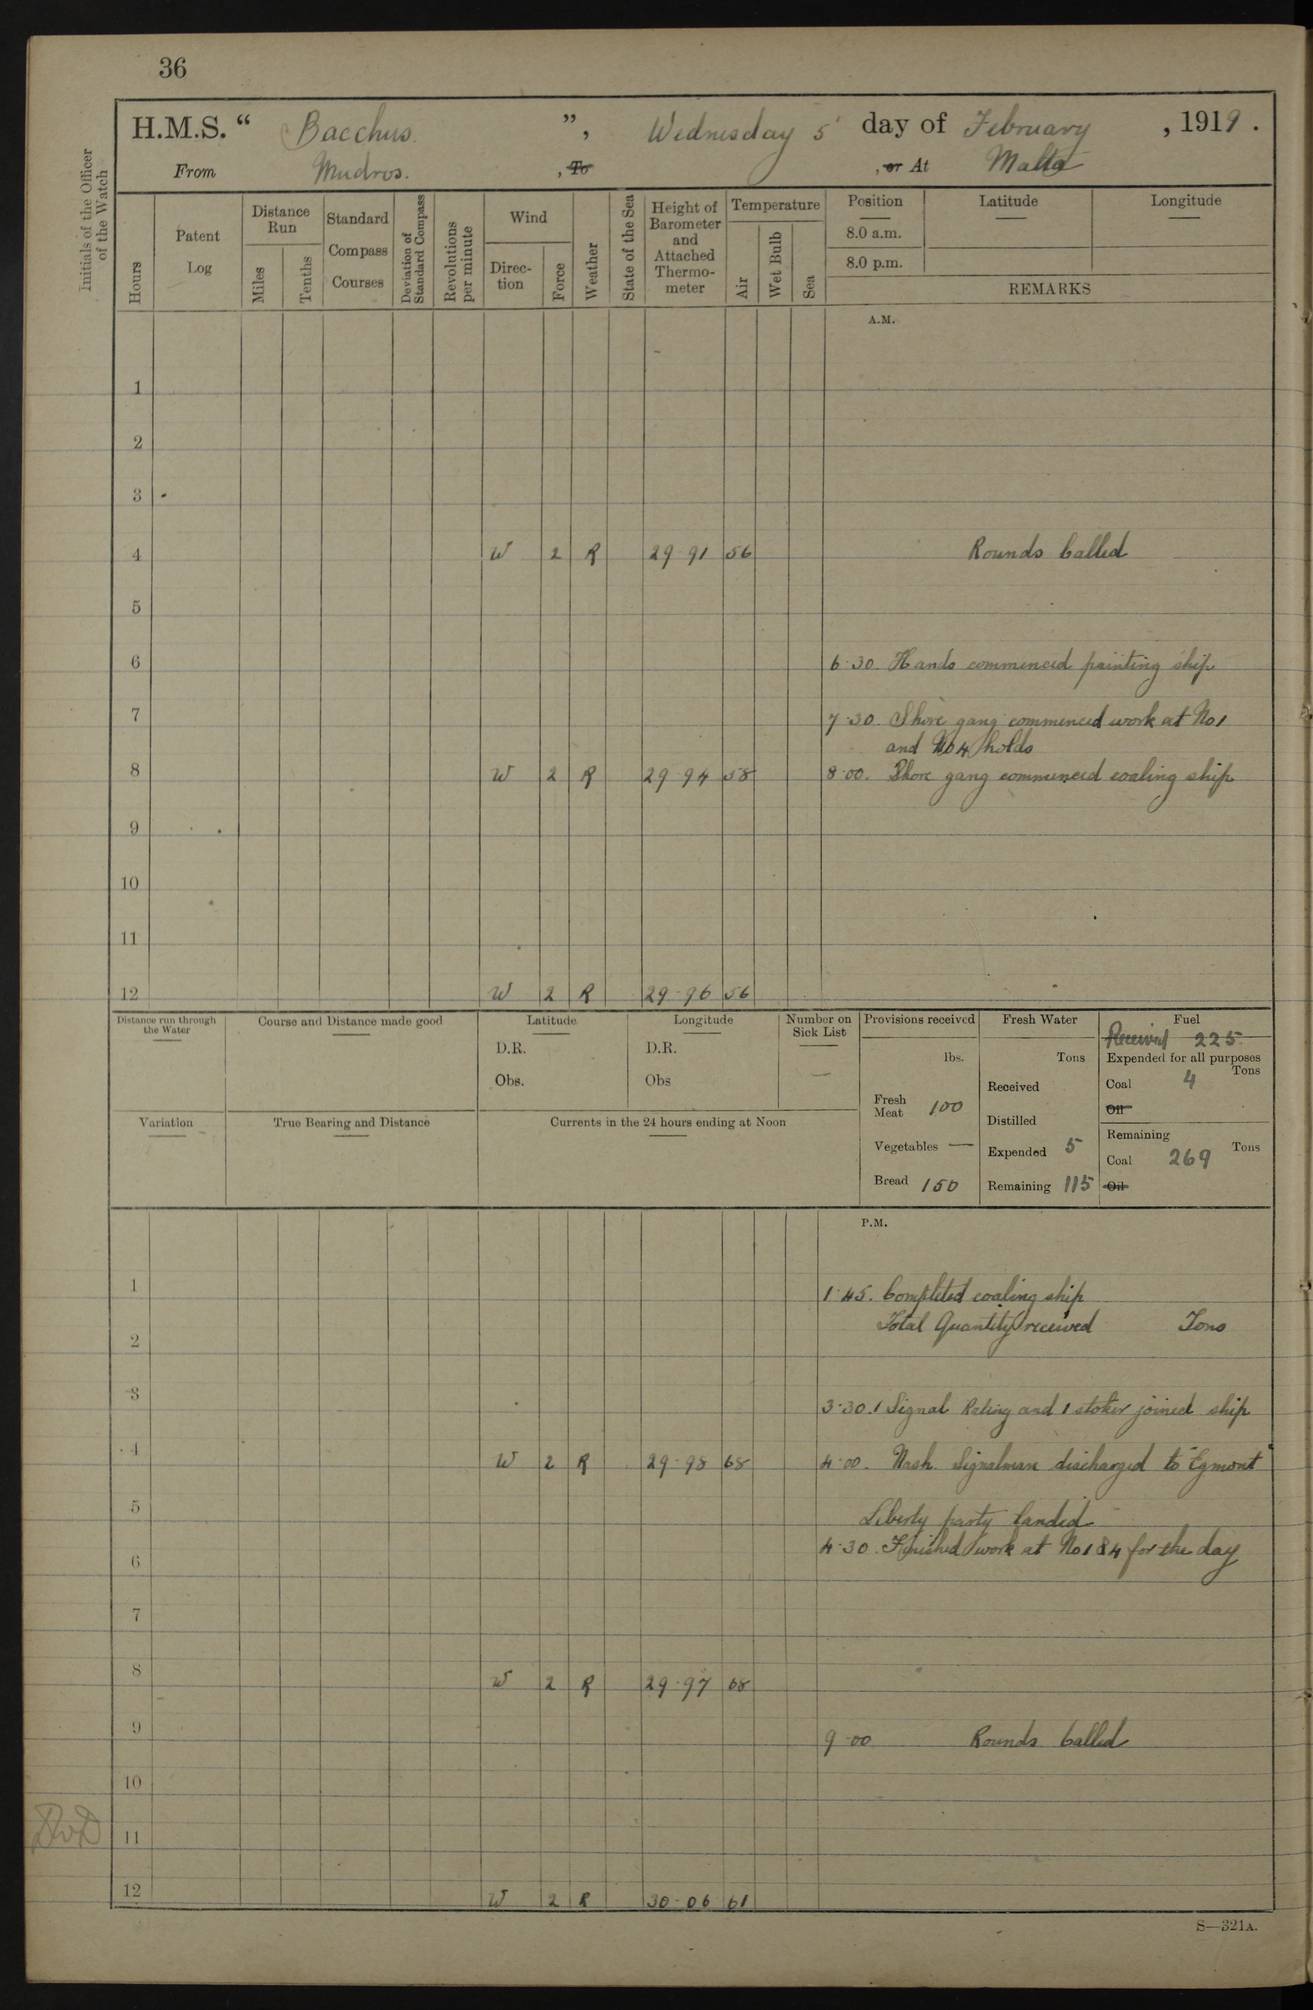 36
H.M.S. “ Bacchus. ”, Wednesday 5 day of February , 1919 .
From Mudros. , To , or At Malta
Initials of the Officer of the Watch
Hours
Patent Log
Distance Run
Miles
Tenths
Standard Compass Courses
Deviation of Standard Compass
Revolutions per minute
Wind
Direc-tion
Force
Weather
State of the Sea
Height of Barometer and Attached Thermo-meter
Temperature
Air
Wet Bulb
Sea
Position Latitude Longitude
8.0 a.m.
8.0 p.m.
REMARKS
A.M.
1
2
3
4 W 2 R 29·91 56 Rounds Called
5
6 6·30. Hands commenced painting ship
7 7·30. Shore gang commenced work at No 1
and No 4 holds
8 W 2 R 29·94 58 8·00. Shore gang commenced coaling ship
9
10
11
12 W 2 R 29·96 56
Distance run through the Water
Course and Distance made good
Latitude
D.R.
Obs.
Longitude
D.R.
Obs
Number on Sick List
—
Provisions received
lbs.
Fresh Meat 100
Vegetables —
Bread 150
Fresh Water
Tons
Received
Distilled
Expended 5
Remaining 115
Fuel
Received 225
Expended for all purposes
Tons
Coal 4
Oil
Remaining
Tons
Coal 269
Oil
Variation
True Bearing and Distance
Currents in the 24 hours ending at Noon
P.M.
1 1·45. Completed coaling ship
Total Quantity received Tons
2
3 3·30. 1 Signal Rating and 1 stoker joined ship
4 W 2 R 29·98 68 4·00. Nash Signalman discharged to "Egmont"
5 Liberty party landed
4·30. Finished work at No 1 & 4 for the day
6
7
8 W 2 R 29·97 68
9 9·00 Rounds Called
10
11
12 W 2 R 30·06 61
S—321A.